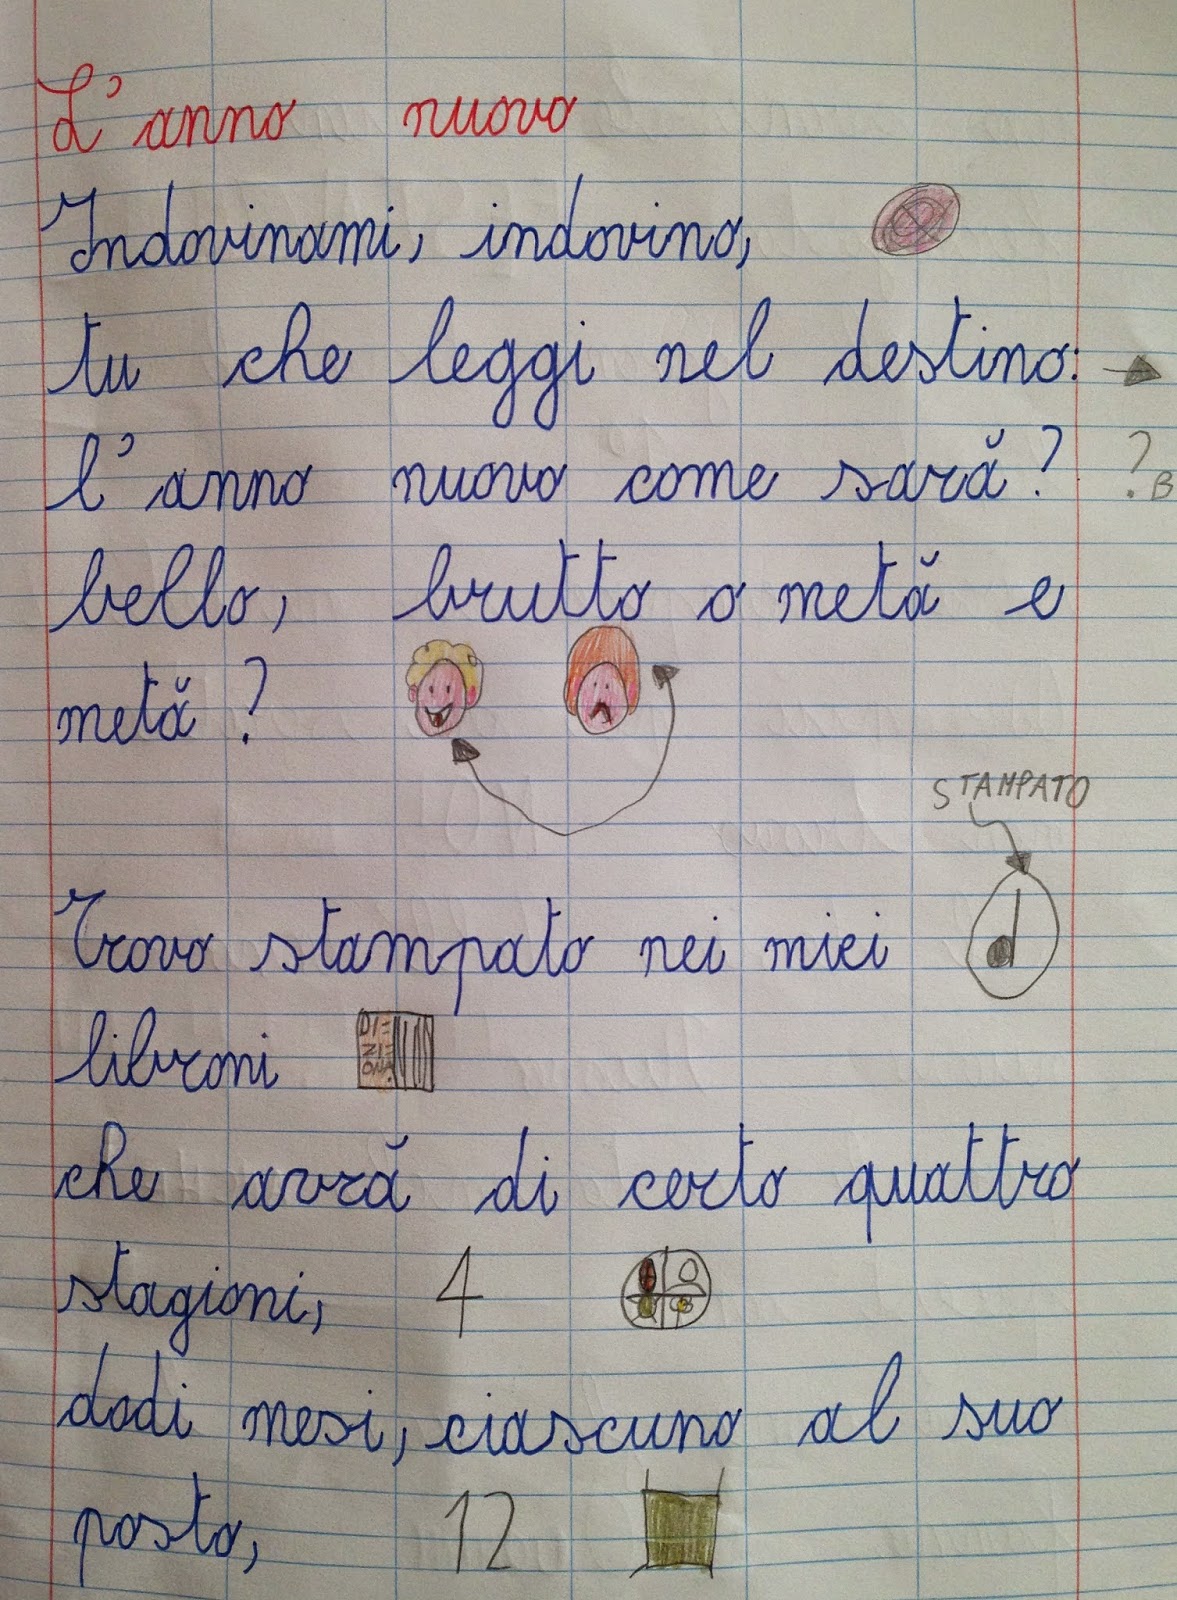 L'anno nuovo
Indovinami, indovino,
tu che leggi nel destino:
l'anno nuovo come sară? ?B
bello, brutto o metă e
metă?
STAMPATO
Trovo stampato nei miei d
libroni DI=
ZI=
ONA.
che avră di certo quattro
stagioni, 4
dodi mesi, ciascuno al suo
posto, 12